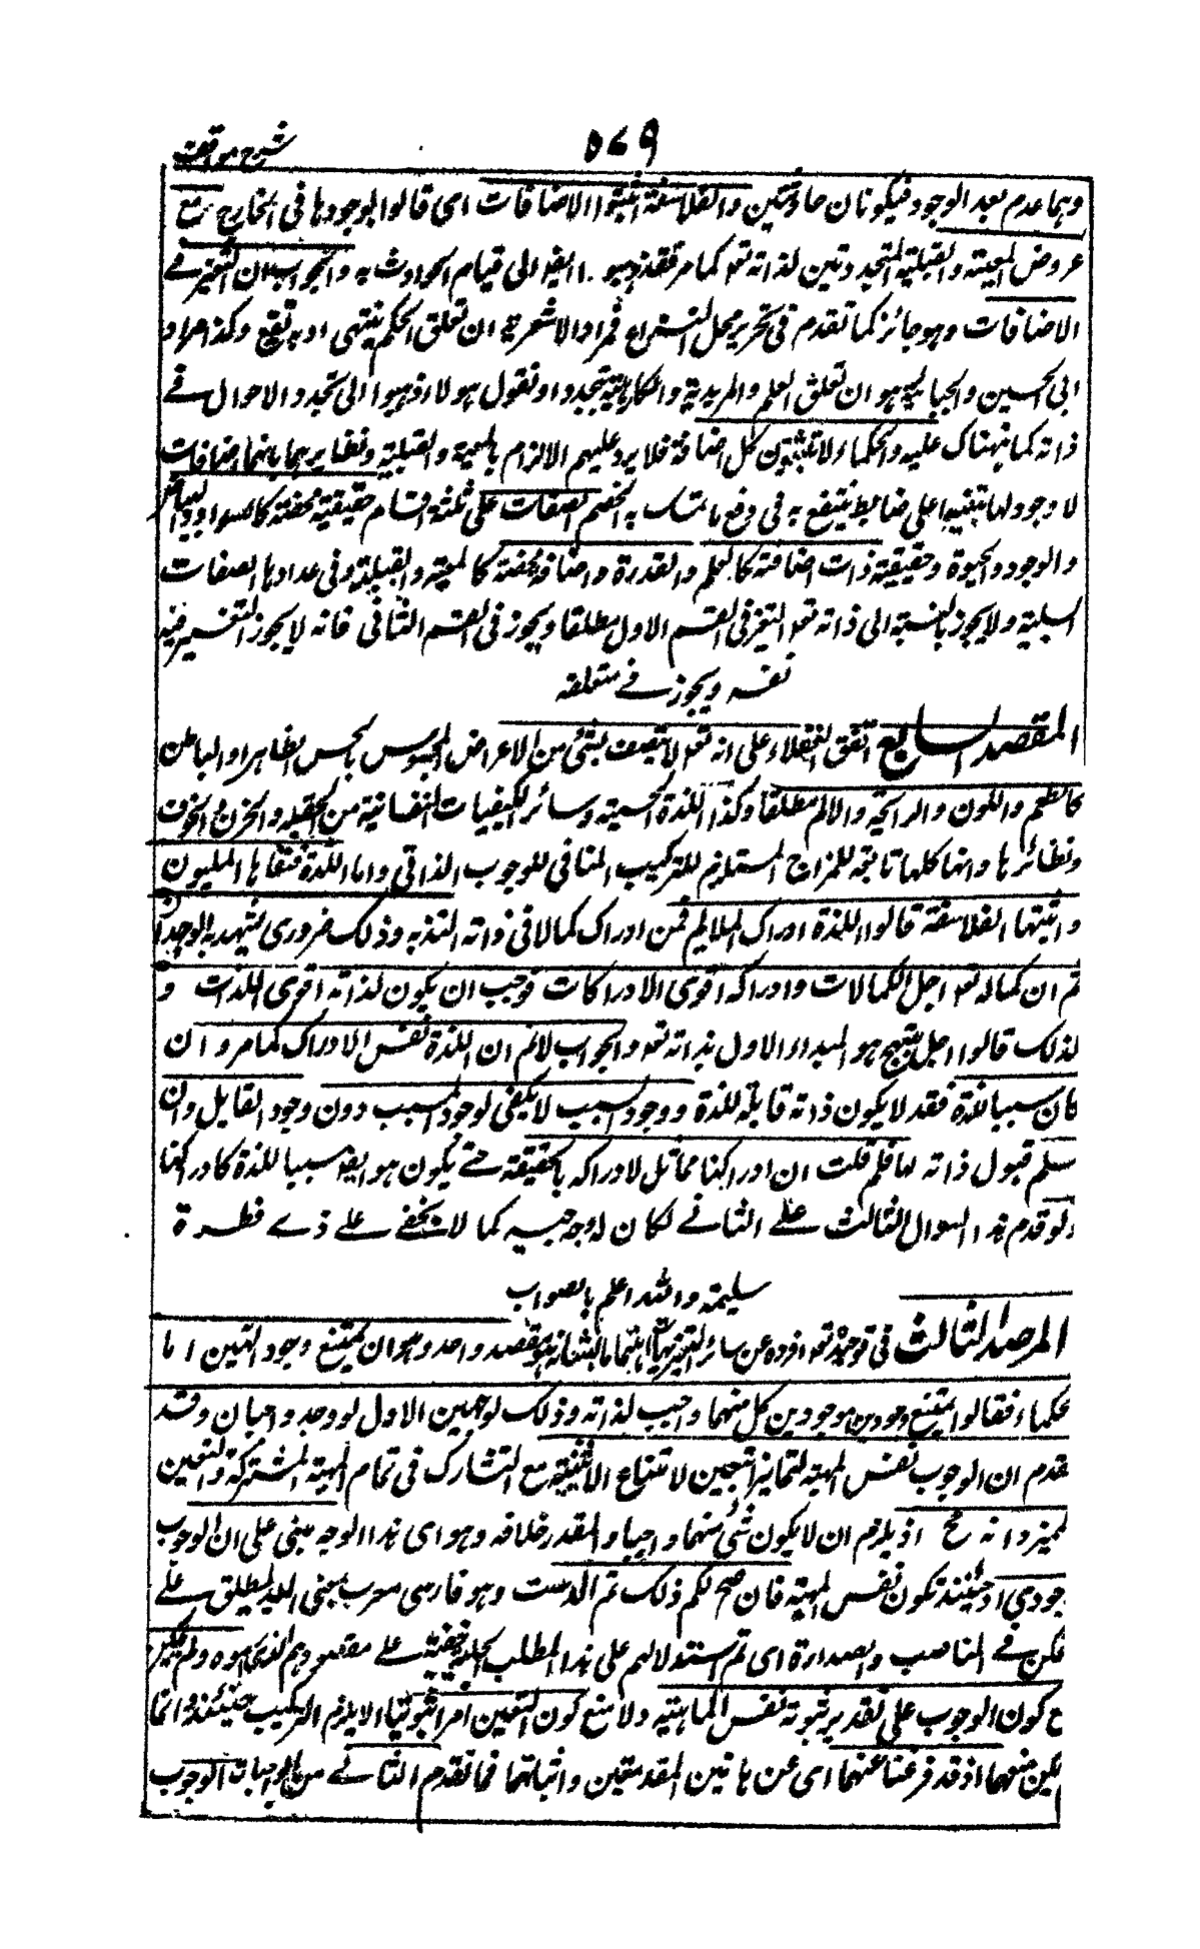 شرح مواقف
٥٧٩
وهما عدم بعد الوجود فيكونان حادثتين والفلاسفة اثبتوا الاضافات اى قالوا بوجودها فى الخارج مع
عروض المعية والقبلية المتجددتين لذاته تعو كما مر فقد ذهبوا ايضا الى قيام الحوادث به والجواب ان التغير فے
الاضافات وهو جائز كما تقدم فى تحرير محل النزاع فمراد الاشعرية ان تعلق الحكم ينتهى او يرتفع وكذا مراد
ابى الحسين والجبائية هو ان تعلق العلم والمريدية والكارهية يتجدد او نقول هولاء ذهبوا الى تجدد الاحوال فے
ذاته كما نبهناك عليه والحكماء لا يثبتون كل اضافة فلا يرد عليهم الالزام بالمعية والقبلية ونظايرهما بانهما اضافات
لا وجود لها تنبيها على ضابط ينتفع به فى دفع ما تمسك به الخصم الصفات على ثلثة اقسام حقيقية محضة كالسواد والبياض
والوجود والحيوة وحقيقية ذات اضافة كالعلم والقدرة واضافة محضة كالمعية والقبلية وفى عدادها الصفات
السلبية ولا يجوز بالنسبة الى ذاته تعو التغير فى القسم الاول مطلقا ويجوز فى القسم الثانى فانه لا يجوز التغير فيه
نفسه ويجوز فے متعلقه
المقصد السابع اتفق العقلاء على انه تعو لا يتصف بشئ من الاعراض المحسوس بالحس الظاهر او الباطن
كالطعم واللون والرائحة والالم مطلقا وكذا اللذة الحسية وسائر الكيفيات النفسانية من الحقد والحزن والخوف
ونظائرها وانها كلها تابعة للمزاج المستلزم للتركيب المنافى للوجوب الذاتى واما اللذة فنفاها المليون
واثبتها الفلاسفة قالوا اللذة ادراك الملايم فمن ادرك كمالا فى ذاته التذ به وذلك ضرورى يشهد به الوجدان
ثم ان كماله تعو اجل الكمالات وادراكه اقوى الادراكات فوجب ان يكون لذاته اقوى اللذات و
لذلك قالوا اجل مبتهج هو المبدء الاول بذاته تعو والجواب لا نم ان اللذة نفس الادراك كما مر وان
كان سببا للذة فقد لا يكون ذاته قابلة للذة ووجود السبب لا يكفى لوجود المسبب دون وجود القابل وان
سلم قبول ذاته لها فلم قلت ان ادراكنا مماثل لادراكه بالحقيقة حتے يكون هو ايضا سببا للذة كادراكنا
ولو قدم هذا السوال الثالث علے الثانے لكان له وجه كما لا يخفے علے ذے فطرة
سليمة والله اعلم بالصواب
المرصد الثالث فى توحيده تعو افرده عن سائر التنزيهات اهتماما بشانه وهو مقصد واحد وهو ان يمتنع وجود الهين اما
حكماء فقالوا يمتنع وجود موجودين كل منهما واجب لذاته وذلك لوجهين الاول لو وجد واجبان وقد
تقدم ان الوجوب نفس المهية لتمايزا بتعين لامتناع الاثنينية مع التشارك فى تمام المهية المشتركة والتعين
لمميز وانه مح اذ يلزم ان لا يكون شئ منهما واجبا والمقدر خلافه وهو اى هذا الوجه مبنى على ان الوجوب
جودى اذ حينئذ تكون نفس المهية فان صح لكم ذلك تم الدست وهو فارسى معرب بمعنى اليد يطلق علے
كن فے المناصب والصدارة اى تم استدلالهم على هذا المطلب الجليل
ع كون الوجوب على تقدير ثبوته نفس الماهية ولا منع كون التعين امرا ثبوتيا اذ لا يلزم التركيب حينئذ وانما
يمكن منعهما اذ قد فرغنا عنهما اى عن هاتين المقدمتين واثباتهما فيما تقدم الثانے من الوجوب